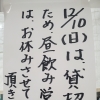 12/10(日)は、貸切
ため、昼飲み営
は、お休みさせて
頂き